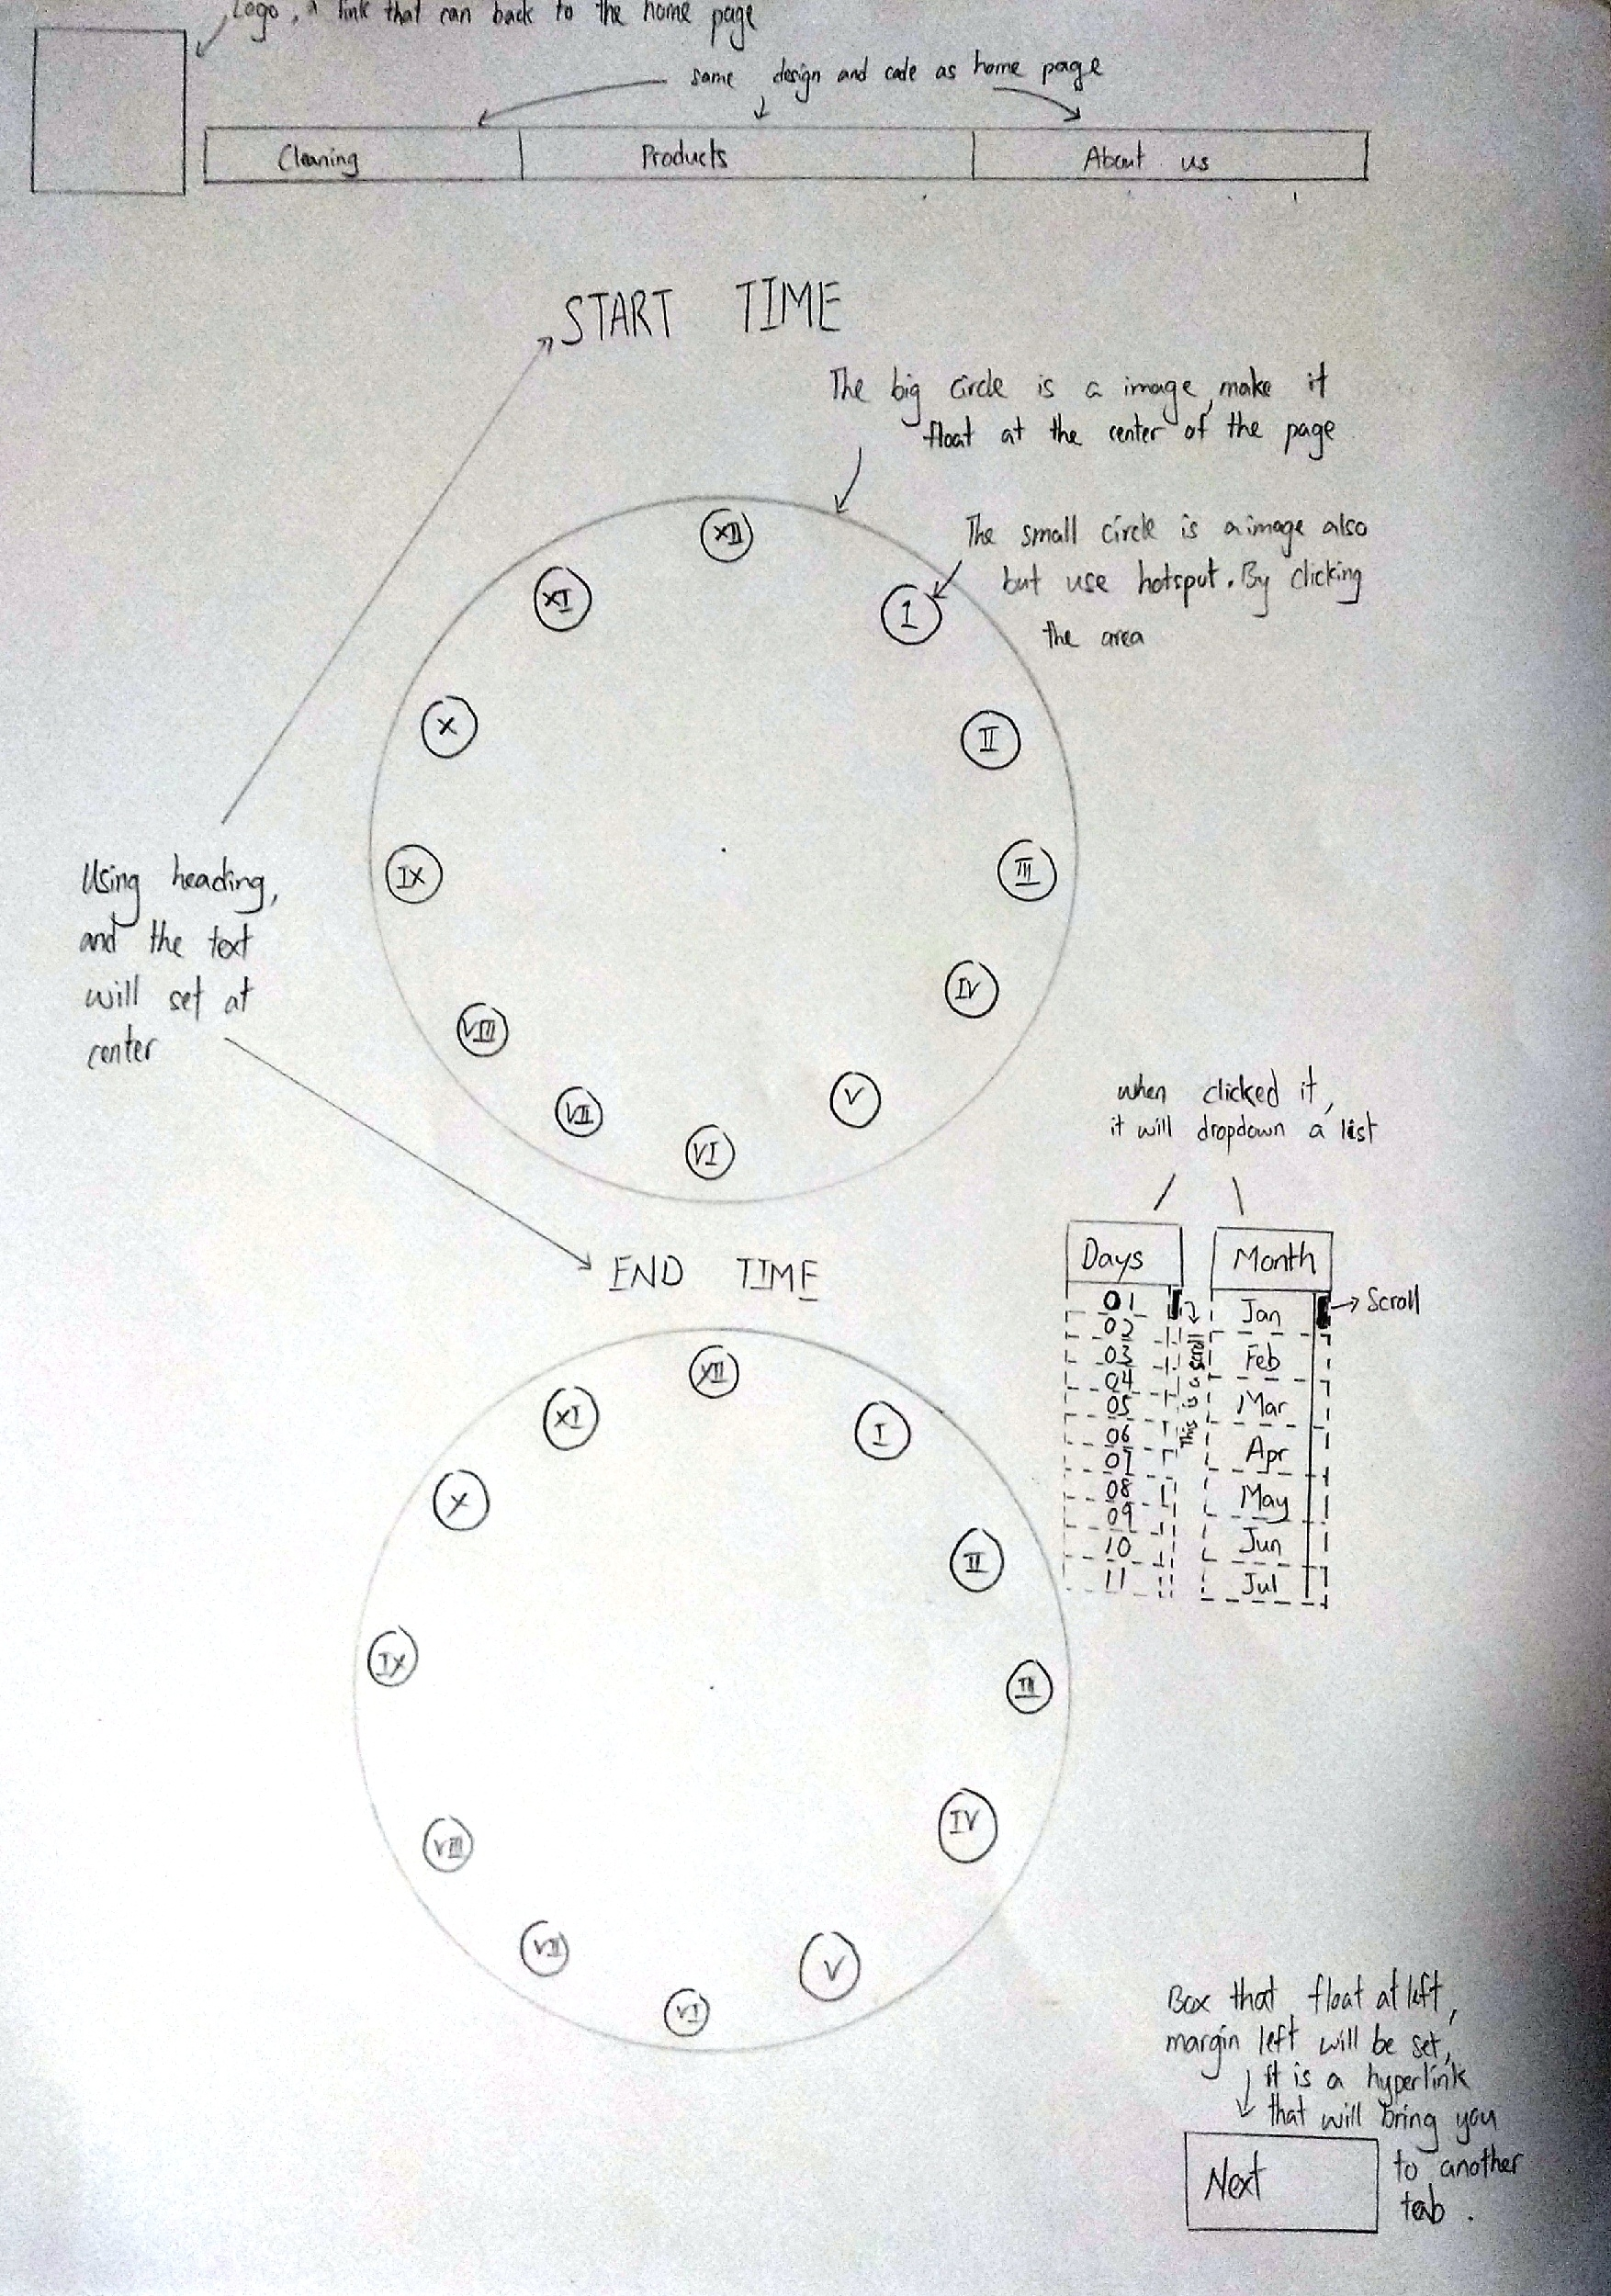 Logo, a link that can back to the home page
same design and code as home page
Cleaning
Products
About us
START TIME
The big circle is a image, make it
float at the center of the page
The small circle is a image also
but use hotsput. By clicking
the area
XII
XI
I
X
II
IX
III
IV
VIII
VII
V
VI
Using heading,
and the text
will set at
center
when clicked it,
it will dropdown a list
Days
Month
01
02
03
04
05
06
07
08
09
10
11
This is a scroll
Jan
Feb
Mar
Apr
May
Jun
Jul
Scroll
END TIME
XII
XI
I
X
II
IX
III
IV
VIII
VII
V
VI
Box that float at left,
margin left will be set,
it is a hyperlink
that will bring you
to another
tab.
Next